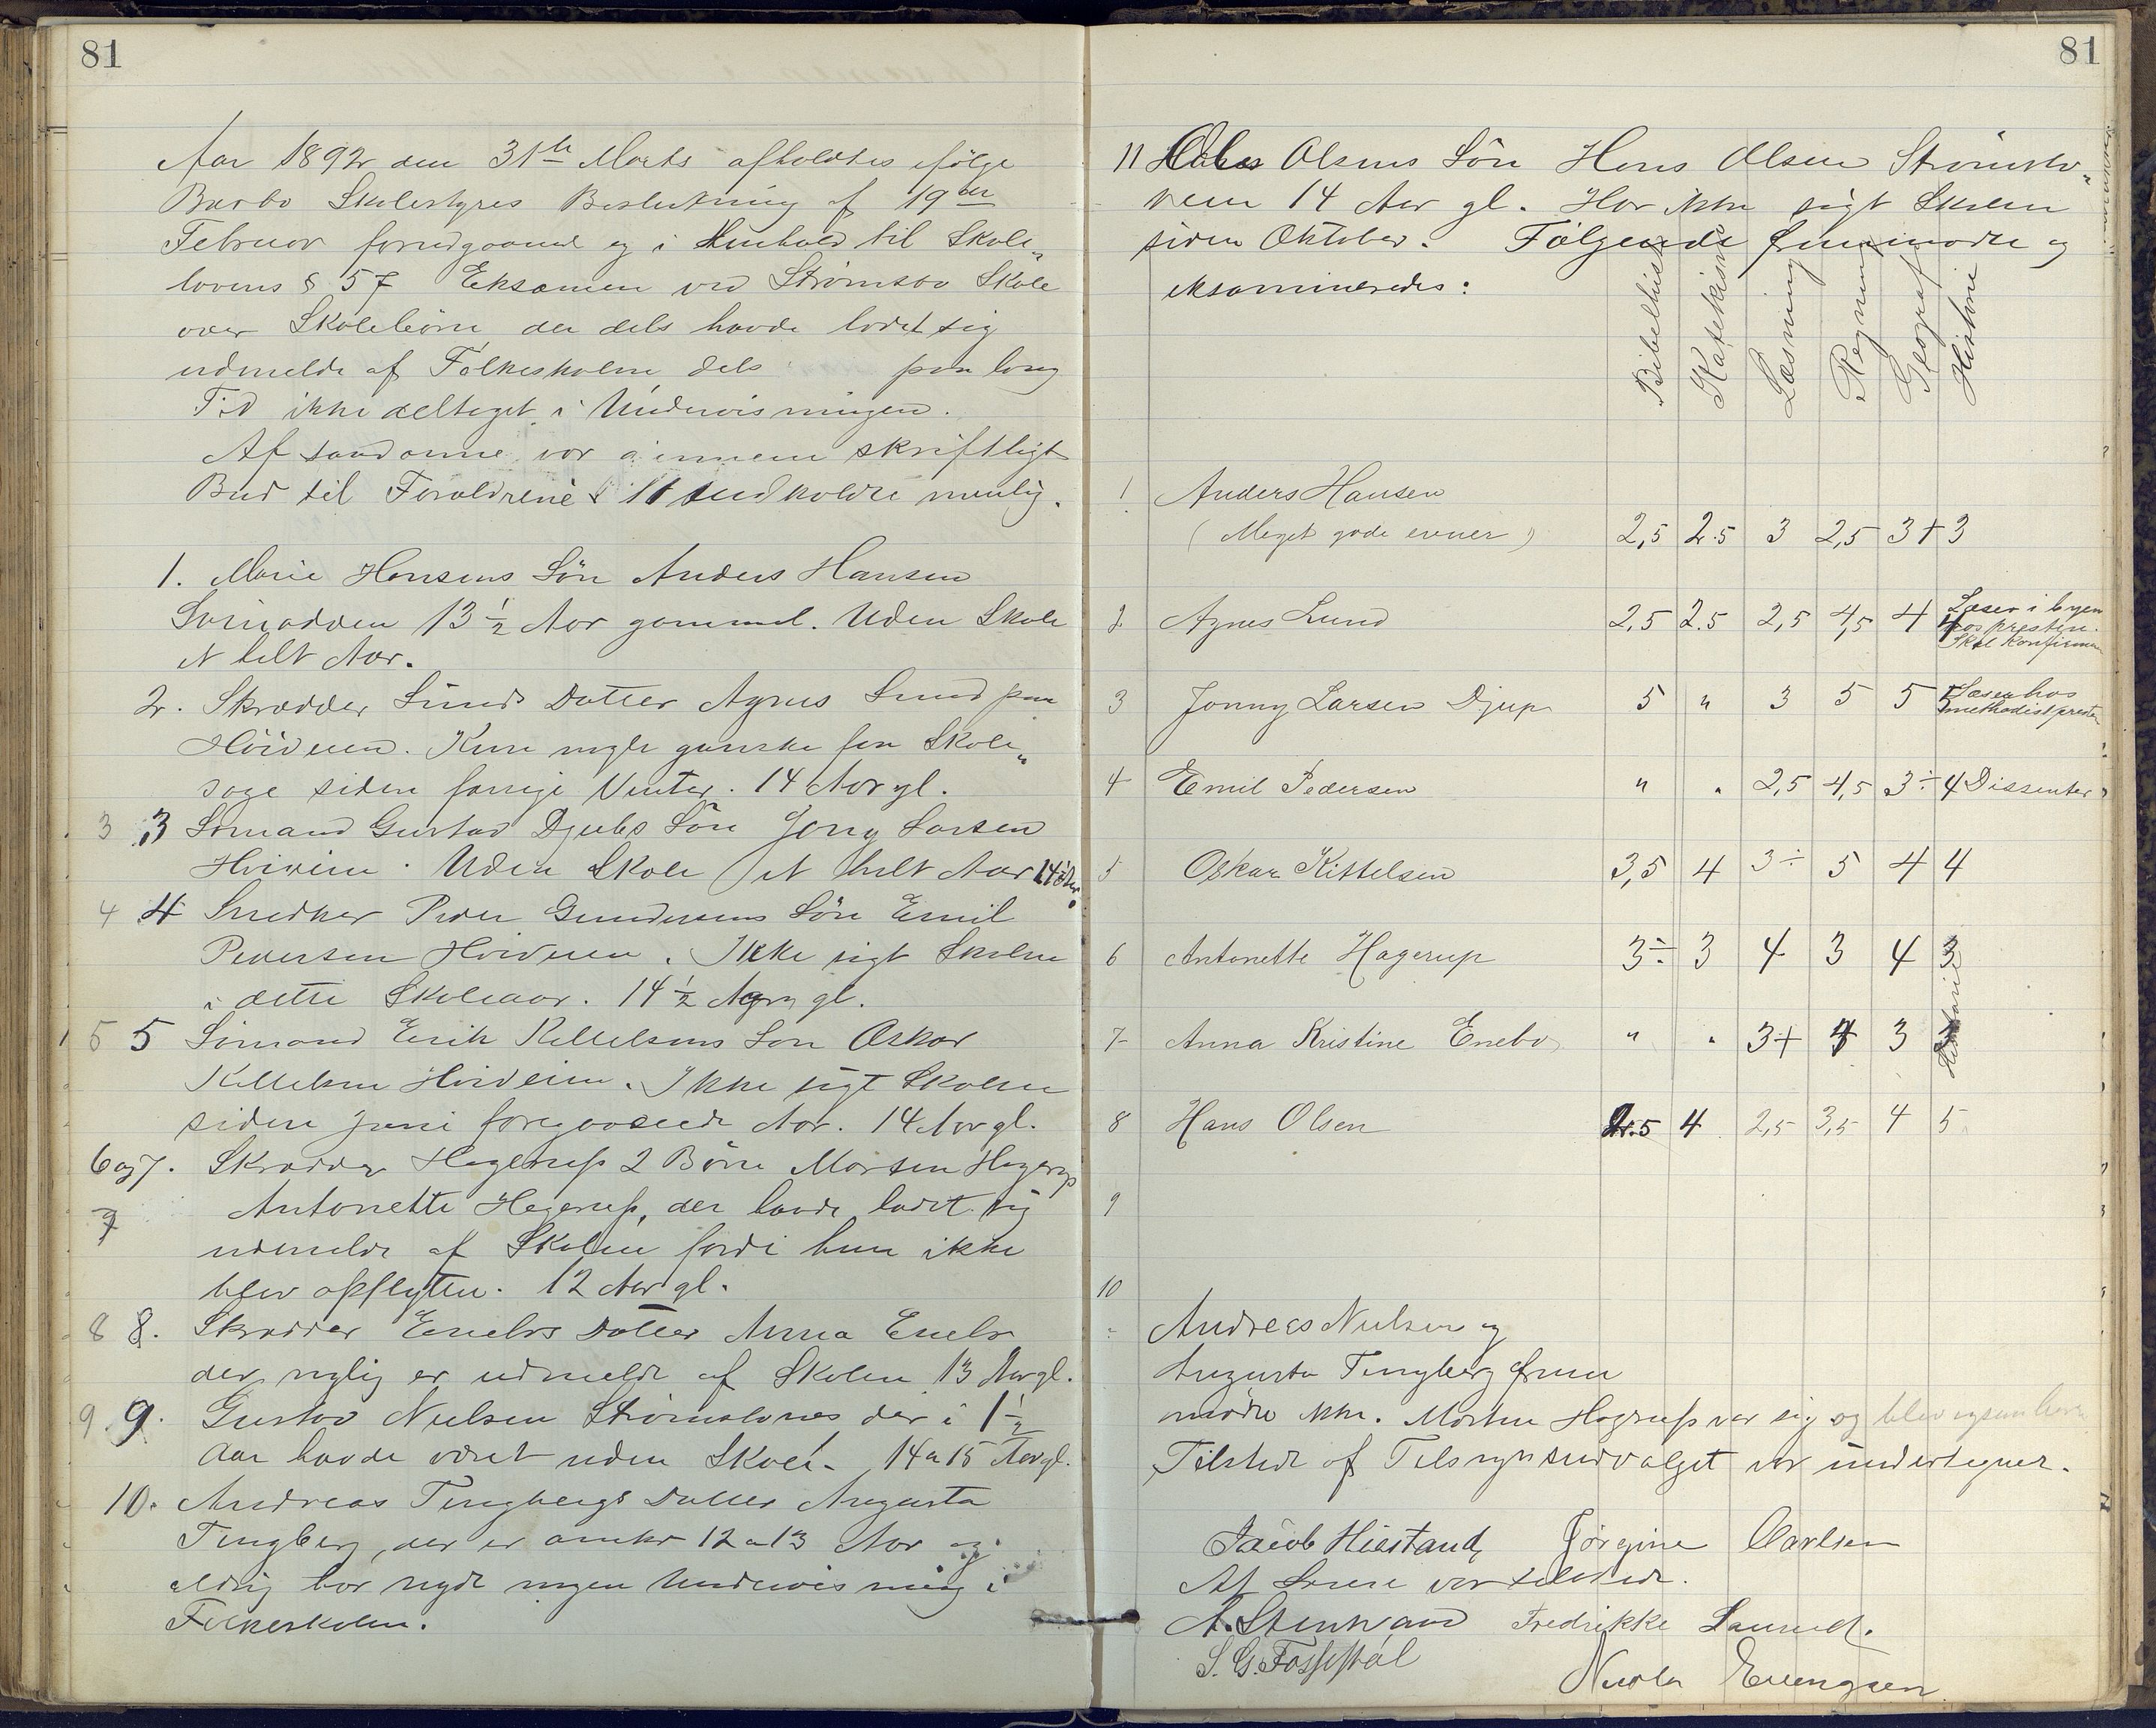 81
Aar 1892 den 31te Marts afholdtes ifølge
Barbo Skolestyres Beslutning af 19den
Februar foregaaende og i Henhold til Skole„
lovens § 57 Eksamen ved Strømsbo Skole
over Skolebørn der dels havde ladet sig
udmelde af Folkeskolen dels paa lang
Tid ikke deltaget i Undervisningen.
Af saadanne var gjennem skriftligt
Bud til Forældrene 11 indkaldte nemlig.
1. Marie Hansens Søn Anders Hansen
13 ½ Aar gammel. Uden Skole
et helt Aar.
2. Skrædder Lunds Datter Agnes Lund paa
Høiveien. Kun nogle ganske faa Skole„
dage siden forrige Vinter. 14 Aar gl.
3 3 Sømand Gustav Djubs Søn Jony Larsen
Høiveien. Uden Skole et helt Aar 14 Aar.
4 4 Snedker Peder Gundersens Søn Emil
Pedersen Høiveien. Ikke søgt Skolen
i dette Skoleaar. 14 ½ Aar gl.
5 5 Sømand Erik Kittelsens Søn Oskar
Kittelsen Høiveien. Ikke søgt Skolen
siden Juni foregaaende Aar. 14 Aar gl.
6 og 7. Skrædder Hagerups 2 Børn Morten Hagerup
7 Antonette Hagerup, der havde ladet sig
udmelde af Skolen fordi hun ikke
blev opflyttet. 12 Aar gl.
8 8. Skrædder Enebos Datter Anna Enebo
der nylig er udmeldt af Skolen 13 Aar gl.
9. 9. Gustav Nielsen Strømsbo der i 1 ½
Aar havde været uden Skole. 14 a 15 Aar gl.
10. Andreas Tingbergs Datter Augusta
Tingberg, der er omkr 12 a 13 Aar og
aldrig har nydt nogen Undervisning i
Folkeskolen.
81
11 Olsens Søn Hans Olsen Strømsbo„
veien 14 Aar gl. Har ikke søgt Skolen
siden Oktober. Følgende fremmødte og
eksamineredes:
Bibelhist Katekisme Læsning Regning Geograf Historie
1 Anders Hansen
(Meget gode evner) 2,5 2.5 3 2,5 3+ 3
2 Agnes Lund 2,5 2.5 2,5 4,5 4 4 Læser i byen
hos presten.
Skal konfirmeres
3 Jonny Larsen Djup 5 " 3 5 5 5 Læser hos
methodistpresten
4 Emil Pedersen " " 2,5 4,5 3÷ 4 Dissenter
5 Oskar Kittelsen 3,5 4 3÷ 5 4 4
6 Antonette Hagerup 3÷ 3 4 3 4 3
7 Anna Kristine Enebo " " 3+ 4 3 Historie
8 Hans Olsen 2.5 4 2,5 3,5 4 5
9
10
Andreas Nielsen og
Augusta Tingberg frem
mødte ikke. Morten Hagerup var syg og blev
Tilstede af Tilsynsudvalget var undertegnede.
Jacob Hiestand, Jørgine Carlsen
Af Lærere var tilstede.
A. Stenvand Fredrikke Laurud.
S. G. Fossestøl
Nicola Evengsen